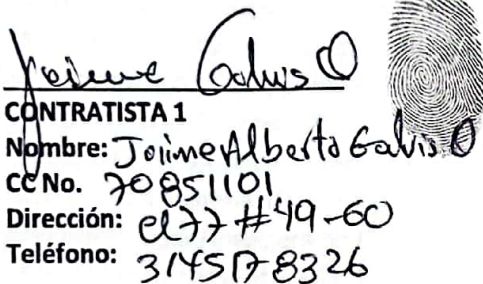 Jaime Galvis O
CONTRATISTA 1
Nombre: Jaime Alberto Galvis O
CC No. 70851101
Dirección: Cl 77 #49-60
Teléfono: 3145178326